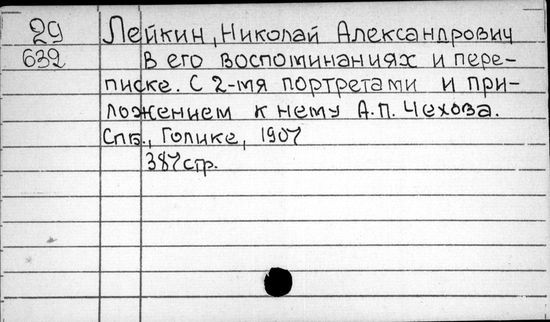 29 Лейкин, Николай Александрович
632 в его воспоминаниях и пере-
писке. С 2-мя портретами и при-
ложением к нему А.П. Чехова.
Спб., Голике, 1907
387 стр.